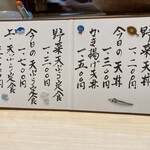 野菜天丼
一、二〇〇円
今日の天丼
一、三〇〇円
かき揚げ天丼
一、五〇〇円
野菜天ぷら定食
一、三〇〇円
今日の天ぷら定食
一、七〇〇円
上・天ぷら定食